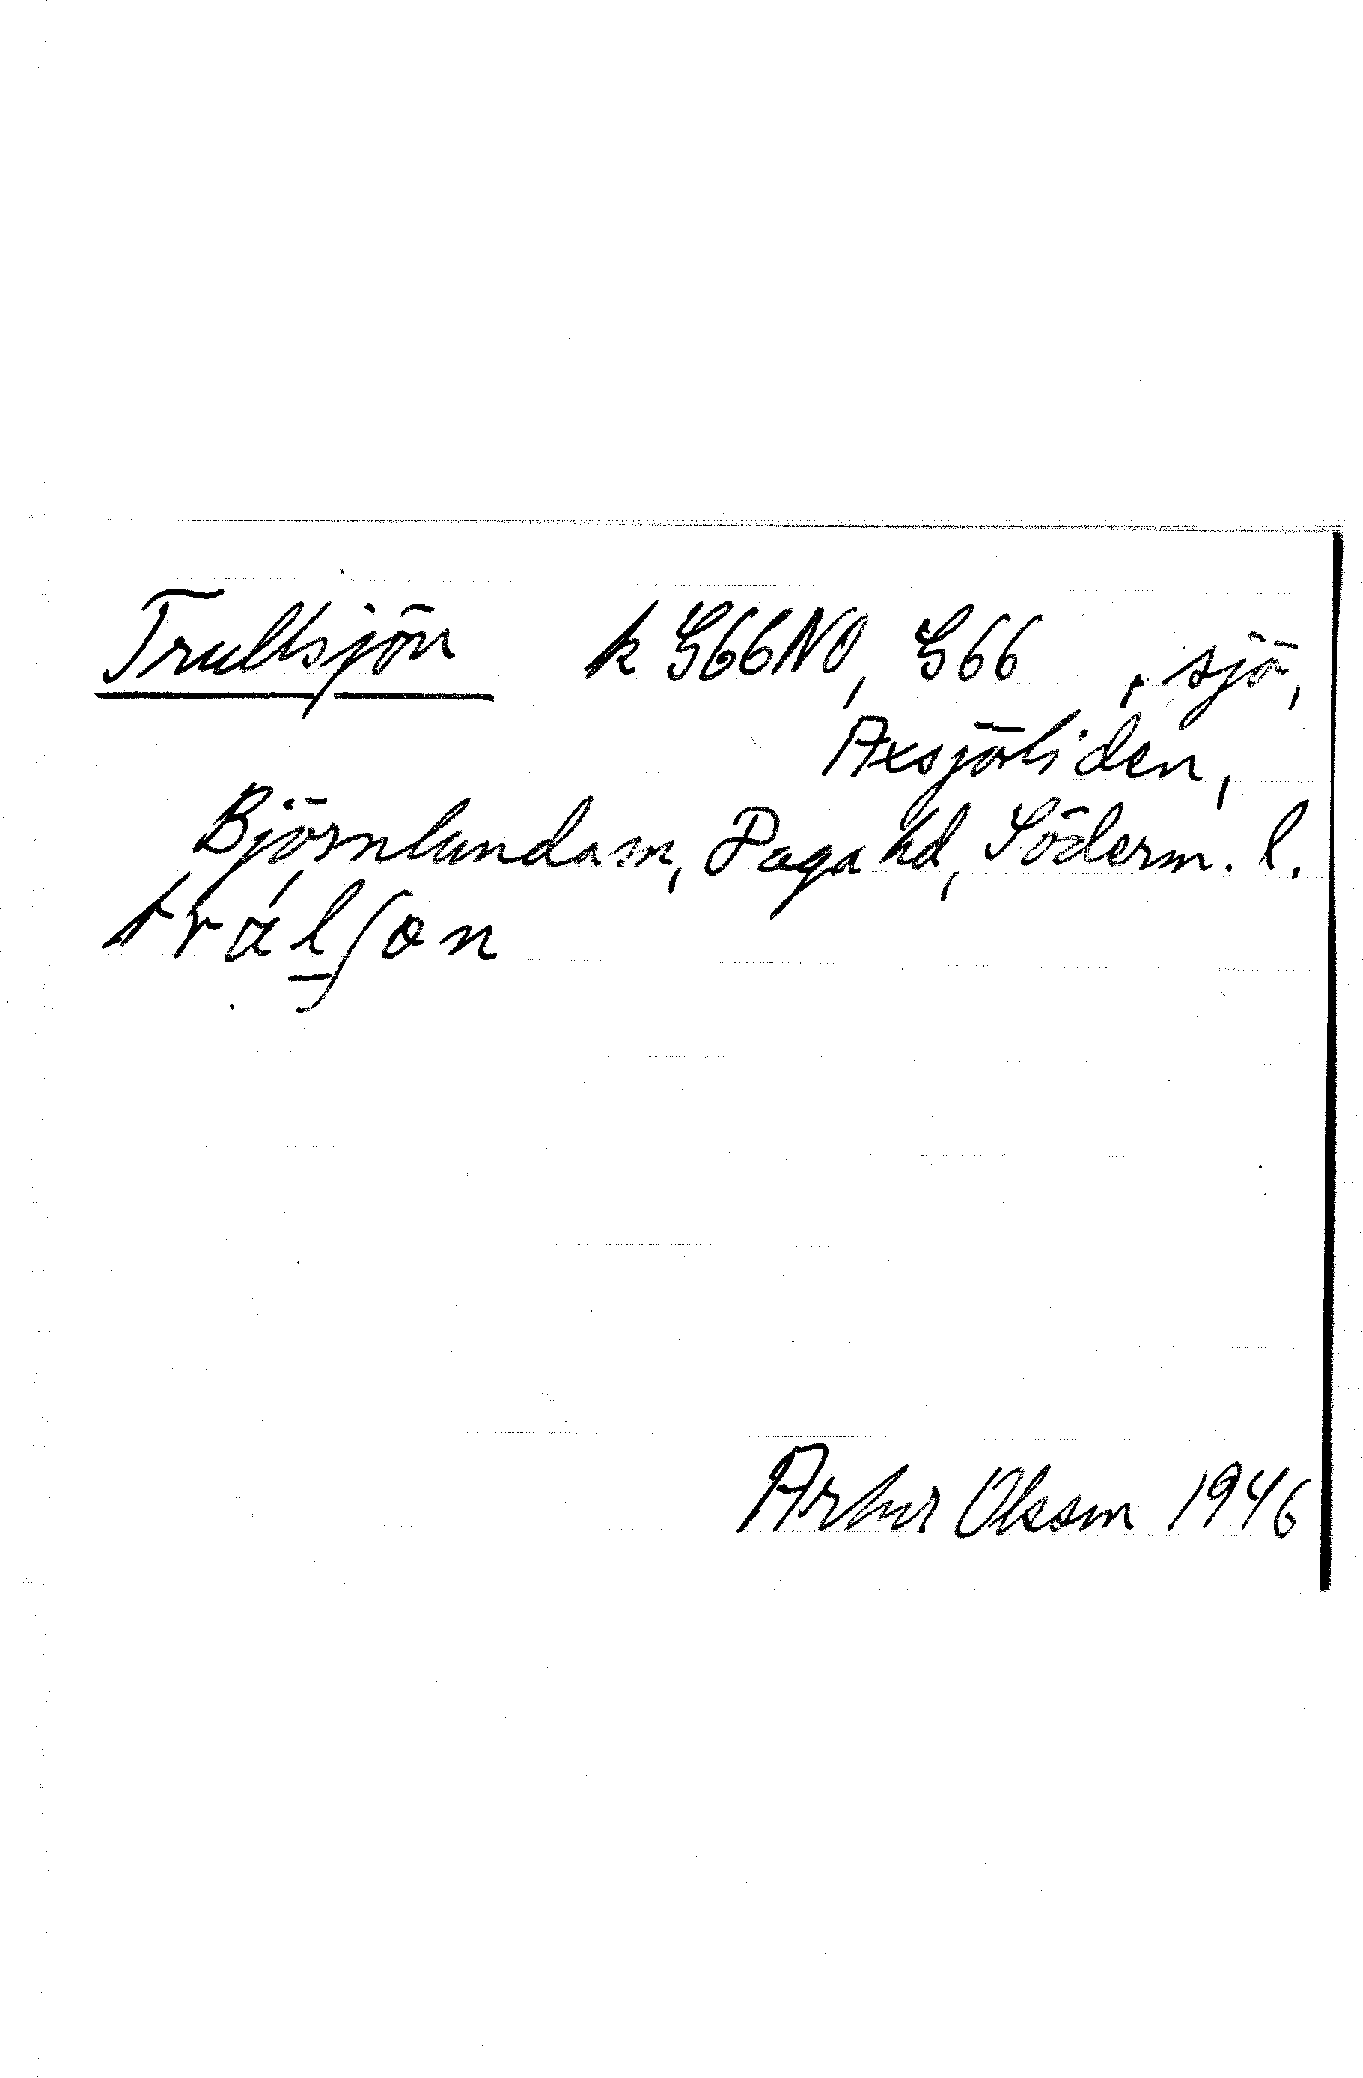 Trullsjön k G66NO, G66 , sjö,
Axsjöliden,
Björnlunda sn, Daga hd, Söderm. l.
trälʃøn
Artur Olsson 1946